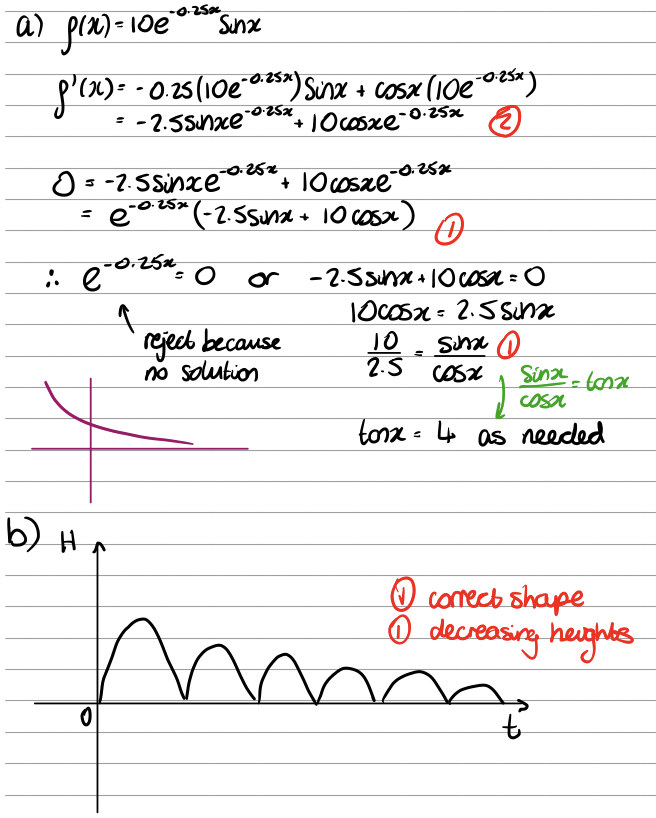 a) f(x) = 10e^-0.25x Sinx
f'(x) = -0.25(10e^-0.25x)Sinx + cosx(10e^-0.25x)
= -2.5sinxe^-0.25x + 10cosxe^-0.25x ②
0 = -2.5sinxe^-0.25x + 10cosxe^-0.25x
= e^-0.25x(-2.5sinx + 10cosx) ①
∴ e^-0.25x = 0 or -2.5sinx + 10cosx = 0
10cosx = 2.5sinx
reject because
no solution
10/2.5 = sinx/cosx ①
sinx/cosx = tanx
tanx = 4 as needed
b) H
① correct shape
① decreasing heights
0
t